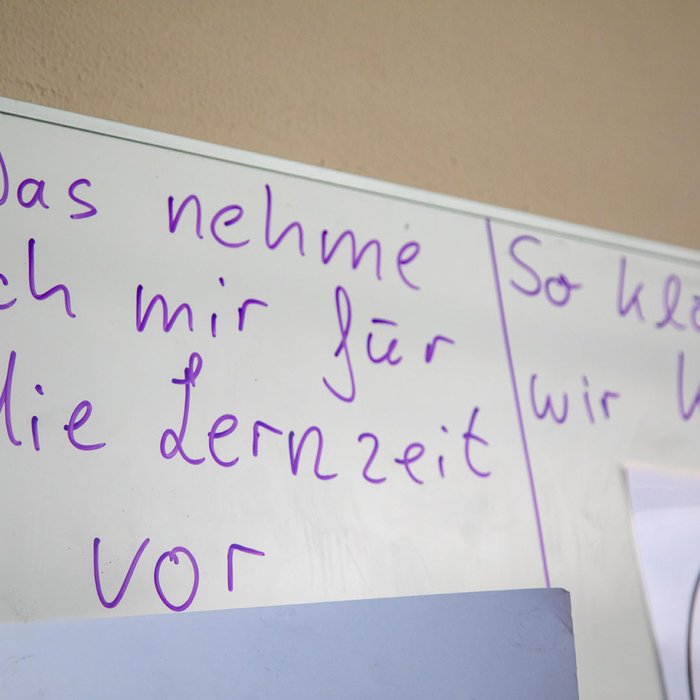 Das nehme
ich mir für
die Lernzeit
vor
So
wir